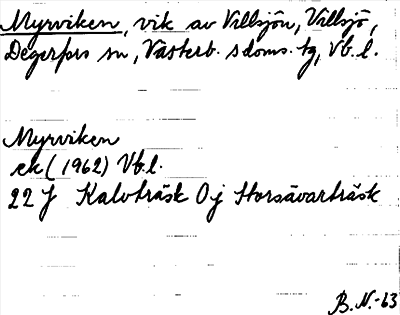 Myrviken, vik av Villsjön, Villsjö,
Degerfors sn, Västerb. s doms. tg, Vb. l.
Myrviken
ek (1962) Vb. l.
22 J Kalvträsk 0j Storsävarträsk
B. N. -63